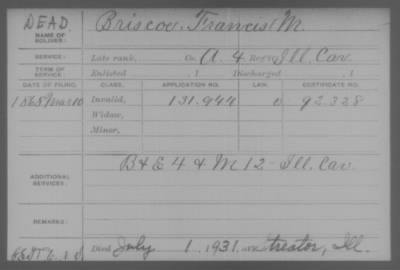 DEAD.
NAME OF SOLDIER: Briscoe, Francis M.
SERVICE: Late rank, Co. A. 4 Reg't Ill. Cav.
TERM OF SERVICE: Enlisted , 1 Discharged , 1
DATE OF FILING. CLASS. APPLICATION NO. LAW. CERTIFICATE NO.
1868 Mar 10 Invalid, 131.944 0 92.328
Widow,
Minor,
ADDITIONAL SERVICES: B & E 4 & M 12 - Ill. Cav.
REMARKS:
Died July 1, 1931, at Streator, Ill.